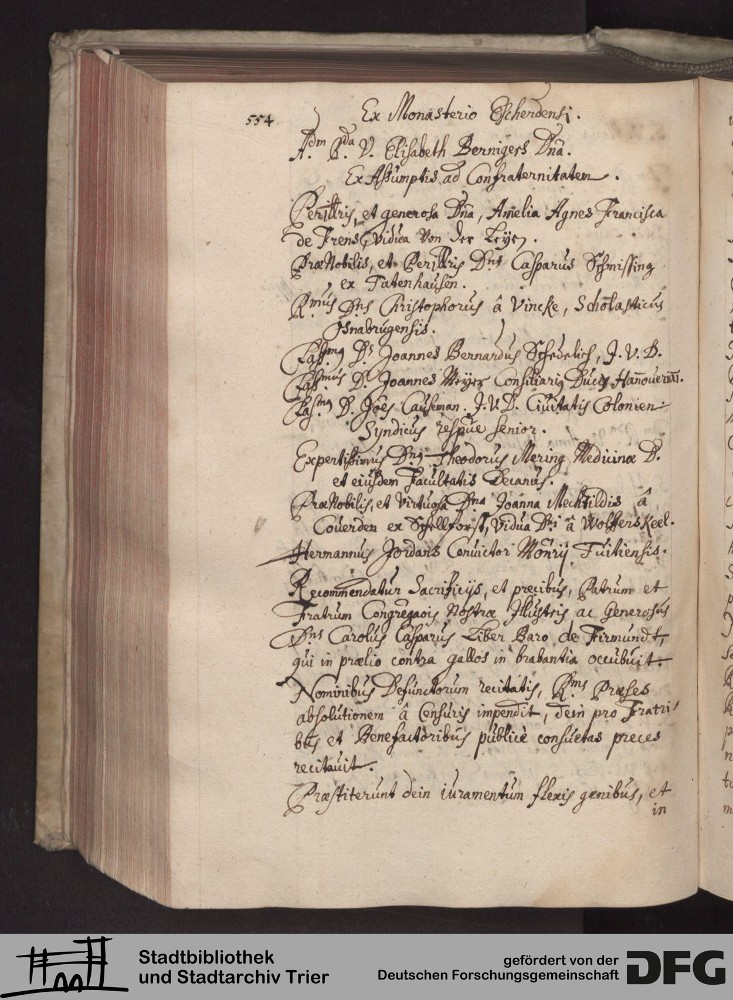 554.
Ex Monasterio Escherdensi.
Adm Rda V. Elisabeth Bernigers Dna.
Ex Assumptis ad Confraternitatem.
Perillris, et generosa Dna, Amelia Agnes Francisca
de Frens, Vidua Von der Leyen.
Præ Nobilis, et Perillris Dns Casparus Schmissing
ex Tatenhausen.
Rmus Dns Christophorus â Vincke, Scholasticus
Osnabrugensis.
D. Joannes Bernardus Schedelich, J. V. D.
D. Joannes Meyer Consiliarius Ducis Hannoveriæ.
D. Joes Causeman. J. V. D. Civitatis Colonien:
Syndicus senior.
Expertissimus Dns Theodorus Mering Medicinæ D.
et eiusdem Facultatis Decanus.
Præ Nobilis, et Virtuosa Dna Joanna Mechtildis â
Couerden ex Schellforst, Vidua Dni â Wolfferskeel.
Hermannus Jordans Convictor Monrij Tuitiensis.
Recommendatur Sacrificijs, et precibus, Patrum et
Fratrum Congregaois Nostræ Illustris ac Generosus
Dns Carolus Casparus Liber Baro de Firmundt,
qui in prælio contra gallos in brabantia occubuit.
Nominibus Defunctorum recitatis, Rms Præses
absolutionem â Censuris impendit, dein pro Fratri
bus et Benefactoribus publicè consuetas preces
recitauit.
Præstiterunt dein iuramentum flexis genibus, et
in
Stadtbibliothek
und Stadtarchiv Trier
gefördert von der
Deutschen Forschungsgemeinschaft
DFG